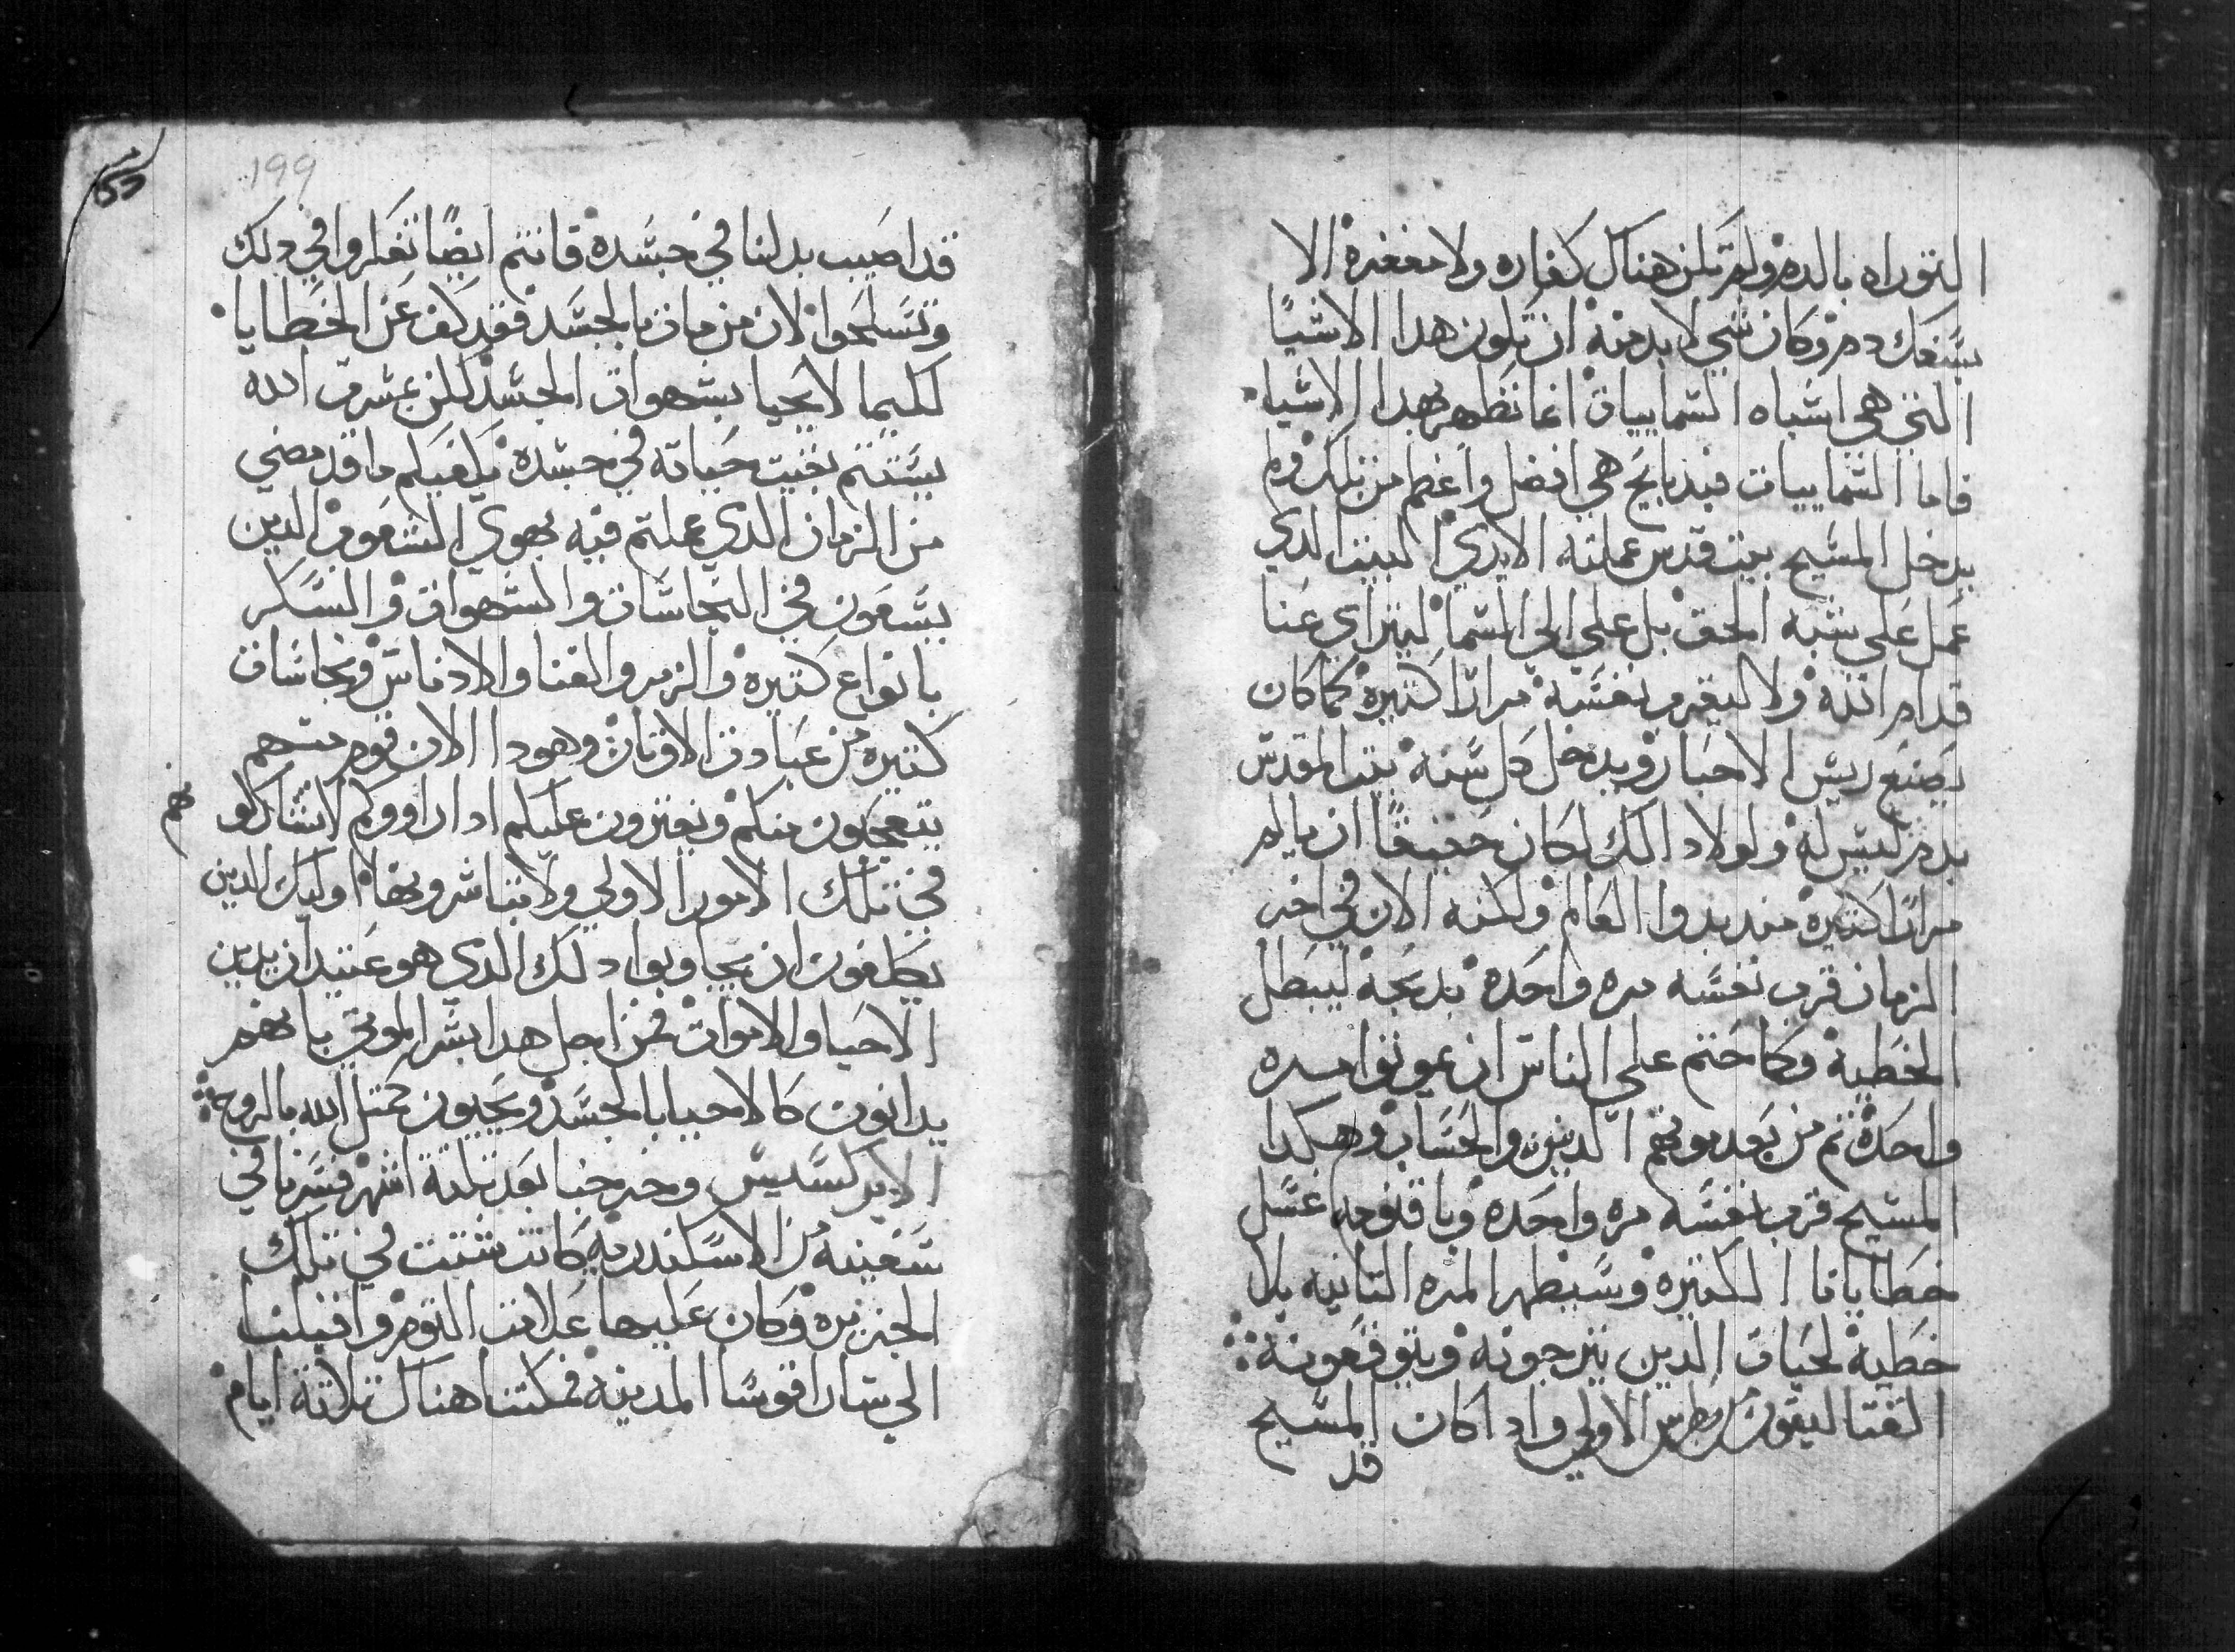 التوراه بالدم ولم تكن هناك كفاره ولا مغفرة الا
بسفك دم وكان شي لا بد منه ان تكون هدا الاشيا
التي هي اشباه السماييات انما تطهر بهدا الاشيا
فاما السماييات فبدبايح هي افضل واعظم من تلك ولم
يدخل المسيح بيت قدس عملته الايدي البيت الدي
عمل على شبه الحق بل على الى السما ليترااي عنا
قدام الله ولا ليقرم نفسه مرارا كتيرة كما كان
يصنع ريس الاحبار ويدخل كل سنه بيت المقدس
بدم ليس له ولولا دالك لكان حقيقا ان يالم
مرارا كتيره منذ بدوا العالم ولكنه الان في اخر
الزمان قرب نفسه مره واحدة بدبحة ليبطل
الخطية وكما حتم على الناس ان يموتوا مره
واحدة تم من بعد موتهم الدينونه والحساب وهكدا
المسيح قرب نفسه مره واحدة وباقنومه غسل
خطايانا الكتيرة وسيظهر المره التانيه بلا
خطية لحيات الدين يترجونه ويتوقعونه
القتاليقون بطرس الاولى واد اكان المسيح
قد
199
قد اصيب بدلنا في جسده فانتم ايضا تفكروا في دلك
وتسلحوا لان من مات بالجسد فقد كف عن الخطايا
لكيما لا يحيا بشهوات الجسد لكن بمشرت الله
يستتم بقيت حياته في جسده يكفيكم ما قد مضى
من الزمان الدي عملتم فيه بهوي الشعوب الدين
يسعون في النجاسات والشهوات والسكر
بانواع كتيره والزمر والغنا والادناس ونجاسات
كتيره من عبادت الاوتان وهودا الان قوم منهم
يتعجبون منكم ويفترون عليكم ادا راووكم لا تشاركو
هم
في تلك الامور الاولى ولا تباشرونها اوليك الدين
يكلفون ان يجاوبوا دلك الدي هو عتيد ان يدين
الاحيا والاموات فمن اجل هدا بشر الموتي بانهم
يدانون كالاحيا بالجسد ويحيون كمتل الله بالروح
الابركسيس وخرجنا بعد تلتة اشهر فسرنا في
سفينه من الاسكندريه كانت شتت في تلك
الجزيره وكان عليها علامت التوم واقبلنا
الى ساراقوسا المدينه فمكتنا هناك تلاتة ايام